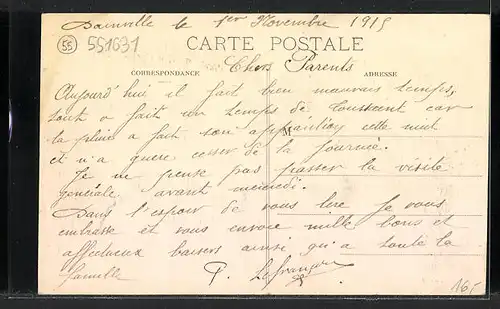 Dainville le 1er Novembre 1915
55
551631
CARTE POSTALE
CORRESPONDANCE
ADRESSE
Chers Parents
Aujourd'hui il fait bien mauvais temps,
tout a fait un temps de Toussaint car
la pluie a fait son apparition cette nuit
et n'a guere cesser de la journée.
Je ne pense pas passer la visite
générale avant mercredi.
Dans l'espoir de vous lire Je vous
embrasse et vous envoie mille bons et
affectueux baisers ainsi qu'a toute la
famille
P. Lefrançois
165